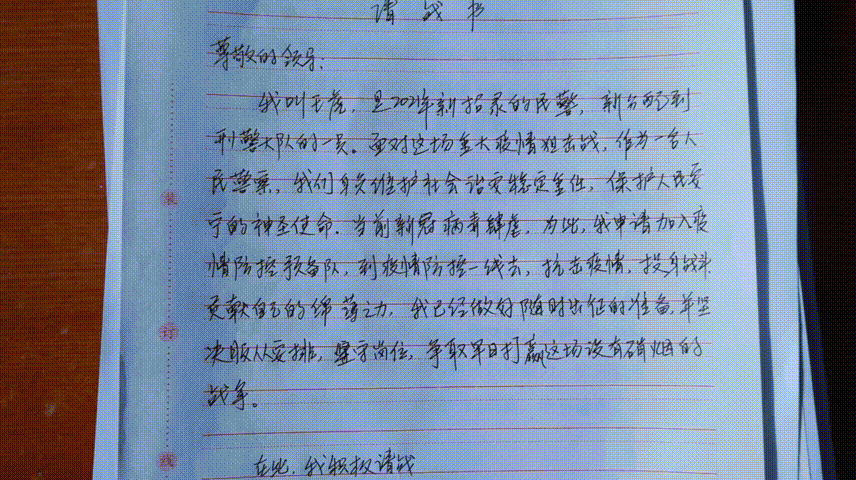 请战书
尊敬的领导：
我叫王虎，是2021年新招录的民警，新分配到
刑警大队的一员。面对这场重大疫情狙击战，作为一名人
民警察，我们身负维护社会治安稳定重任，保护人民安
宁的神圣使命。当前新冠病毒肆虐，为此，我申请加入疫
情防控预备队，到疫情防控一线去，抗击疫情，投身战斗
贡献自己的绵薄之力，我已经做好随时出征的准备，并坚
决服从安排，坚守岗位，争取早日打赢这场没有硝烟的
战争。
在此，我积极请战
装
订
线